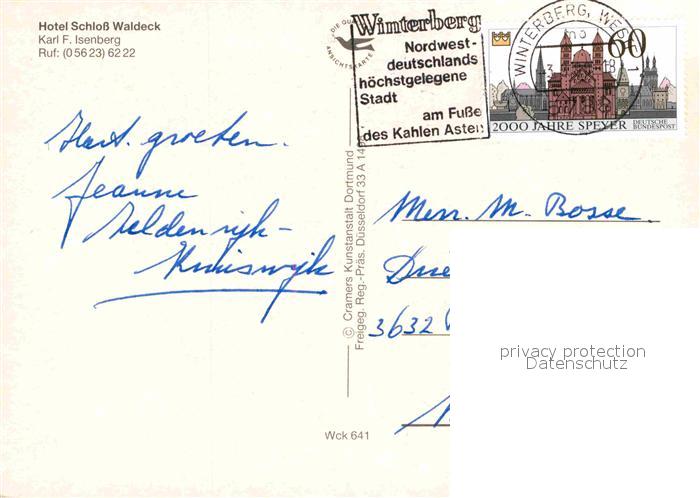 Hotel Schloß Waldeck
Karl F. Isenberg
Ruf: (0 56 23) 62 22
DIE GU
ANSICHTSKARTE
Winterberg
Nordwest-
deutschlands
höchstgelegene
Stadt
am Fuße
des Kahlen Asten
WINTERBERG, WES
60
2000 JAHRE SPEYER
DEUTSCHE
BUNDESPOST
Hart. groeten.
Jeanne
Seldenrijk-
Kruiswijk
© Cramers Kunstanstalt Dortmund
Freigeg. Reg.-Präs. Düsseldorf 33 A 14
Mevr. M. Bosse
3632
Wck 641
privacy protection
Datenschutz